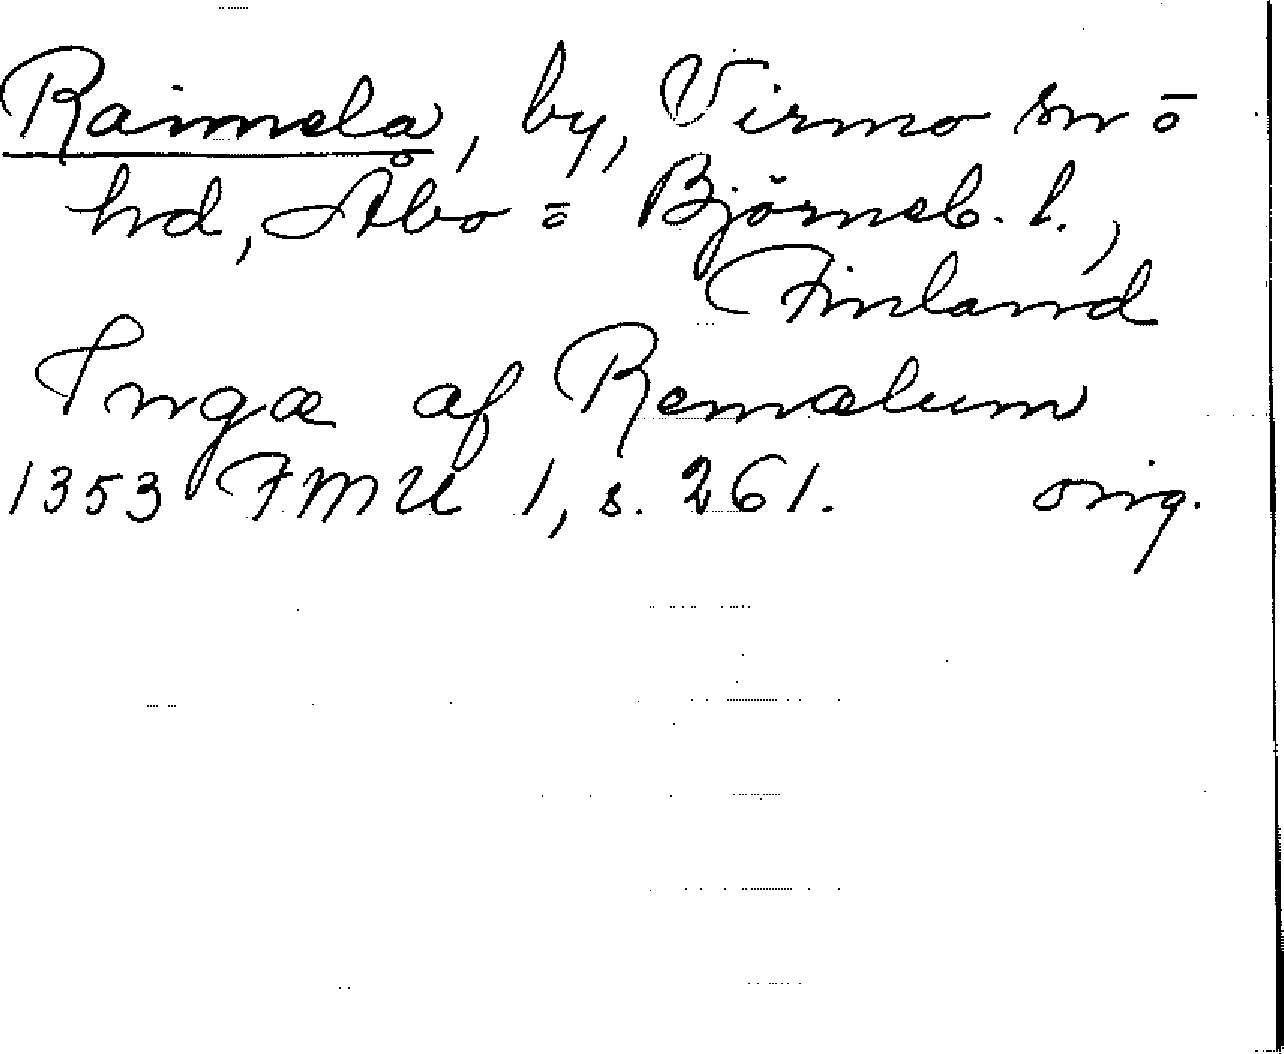 Raimela, by, Virmo sn o
hd, Åbo = Björneb. l.,
Finland
Ingæ af Remælum
1353 FMU 1, s. 261. orig.